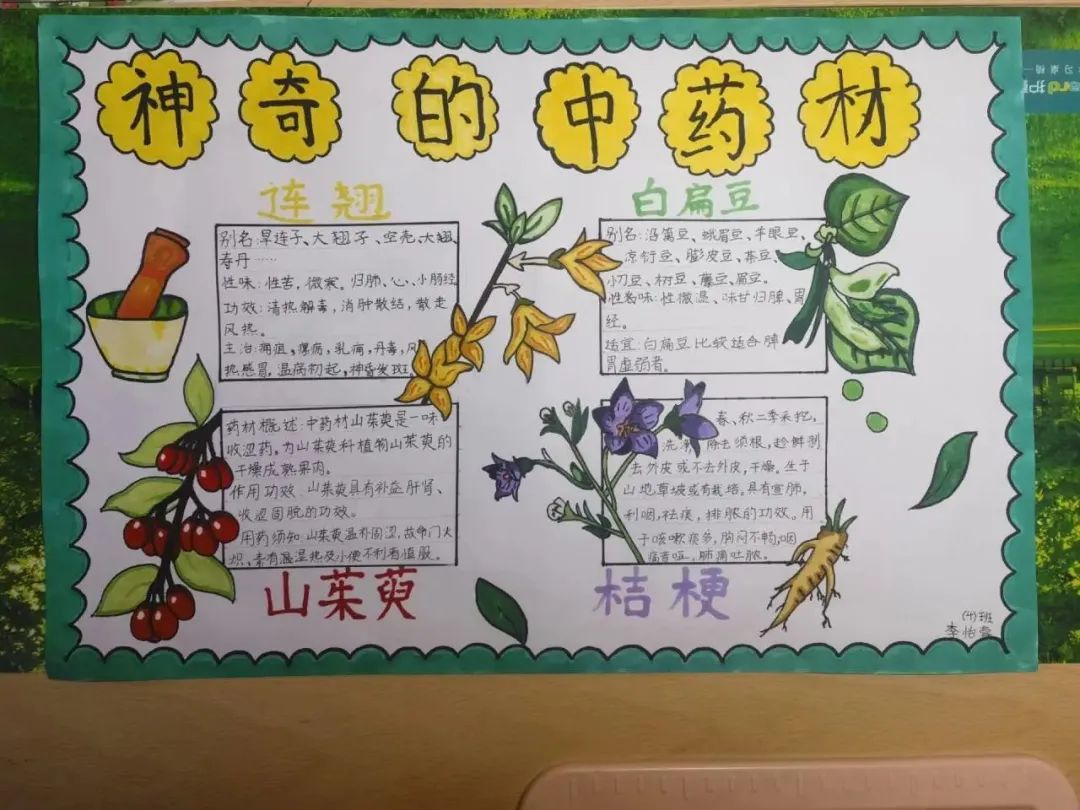 神奇的中药材
连翘
别名:旱连子、大翘子、空壳、大翘、
寿丹……
性味:性苦,微寒。归肺、心、小肠经
功效:清热解毒,消肿散结,散走
风热。
主治:痈疽,瘰疬,乳痈,丹毒,风
热感冒,温病初起,神昏发斑。
白扁豆
别名:沿篱豆、蛾眉豆、羊眼豆、
凉衍豆、膨皮豆、茶豆、
小刀豆、树豆、藤豆、眉豆。
性味:性微温、味甘归脾、胃
经。
适宜:白扁豆比较适合脾
胃虚弱者。
药材概述:中药材山茱萸是一味
收涩药。为山茱萸科植物山茱萸的
干燥成熟果肉。
作用功效:山茱萸具有补益肝肾、
收涩固脱的功效。
用药须知:山茱萸温补固涩,故命门火
炽、素有湿热及小便不利者慎服。
山茱萸
春、秋二季采挖,
洗净,除去须根,趁鲜剥
去外皮或不去外皮,干燥。生于
山地草坡或有栽培。具有宣肺,
利咽,祛痰,排脓的功效。用
于咳嗽痰多,胸闷不畅,咽
痛音哑,肺痈吐脓。
桔梗
班
李怡
习桌椅
护